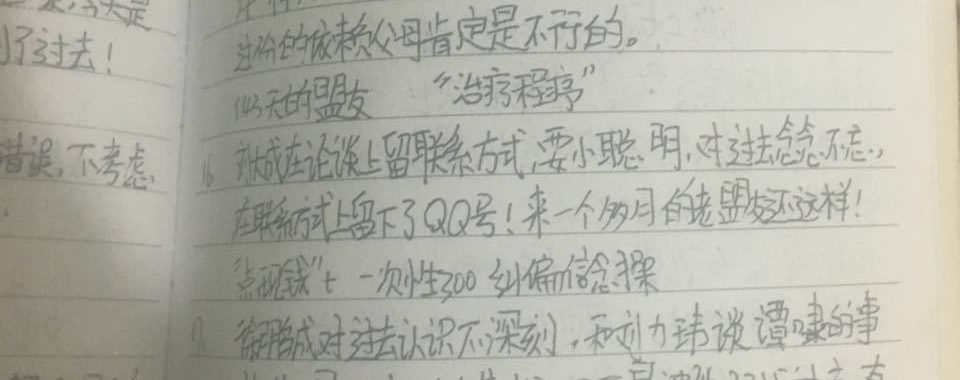 天是
了过去！
错误，不考虑
过份的依赖父母肯定是不行的。
143天的盟友 “治疗程序”
16 成在论谈上留联系方式，耍小聪明，对过去念念不忘，
在联系方式上留下了QQ号！来一个多月的老盟友还这样！
“点现钱”t 一次性300 纠偏信念操
17 成对过去认识不深刻，和刘力玮谈谭啸的事